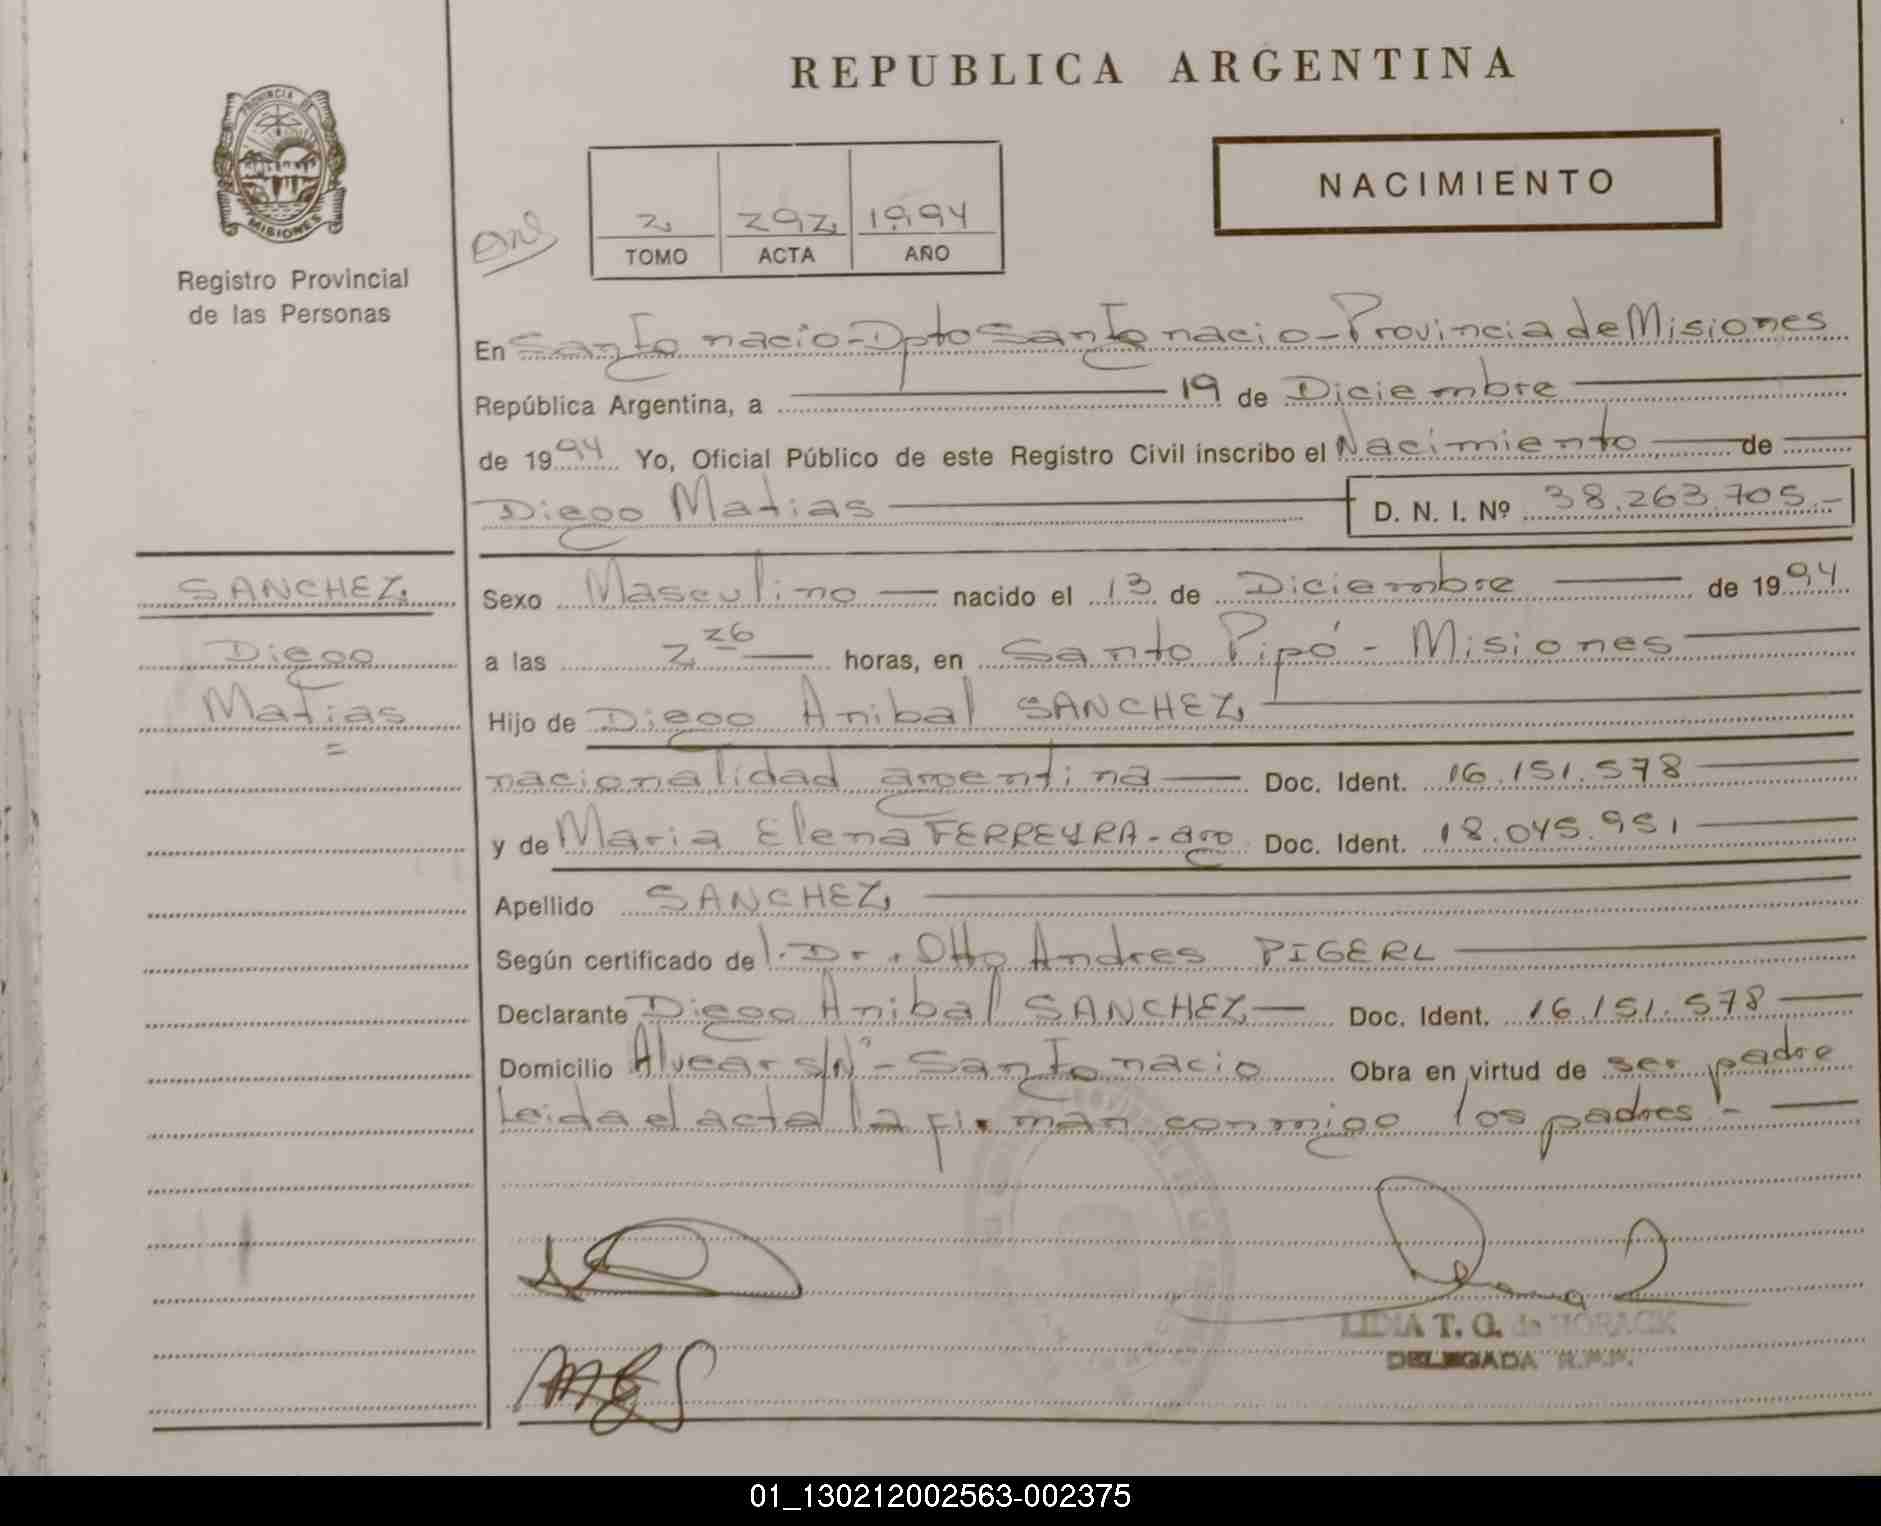 REPUBLICA ARGENTINA
PROVINCIA DE
MISIONES
Registro Provincial
de las Personas
NACIMIENTO
2 292 1994
TOMO ACTA AÑO
En San Ignacio - Dpto San Ignacio - Provincia de Misiones
República Argentina, a 19 de Diciembre
de 1994 Yo, Oficial Público de este Registro Civil inscribo el Nacimiento de
Diego Matias D. N. I. Nº 38.263.705.-
SANCHEZ
Diego
Matias
Sexo Masculino nacido el 13 de Diciembre de 1994
a las 2 26 horas, en Santo Pipó - Misiones
Hijo de Diego Anibal SANCHEZ
nacionalidad argentina Doc. Ident. 16.151.578
y de Maria Elena FERREYRA - arg. Doc. Ident. 18.045.951
Apellido SANCHEZ
Según certificado del Dr. Otto Andres PIGERL
Declarante Diego Anibal SANCHEZ Doc. Ident. 16.151.578
Domicilio Alvear s/Nº - San Ignacio Obra en virtud de ser padre
Leida el acta la firman conmigo los padres.-
LIDIA T. G. de HORACK
DELEGADA R.P.P.
01_130212002563-002375